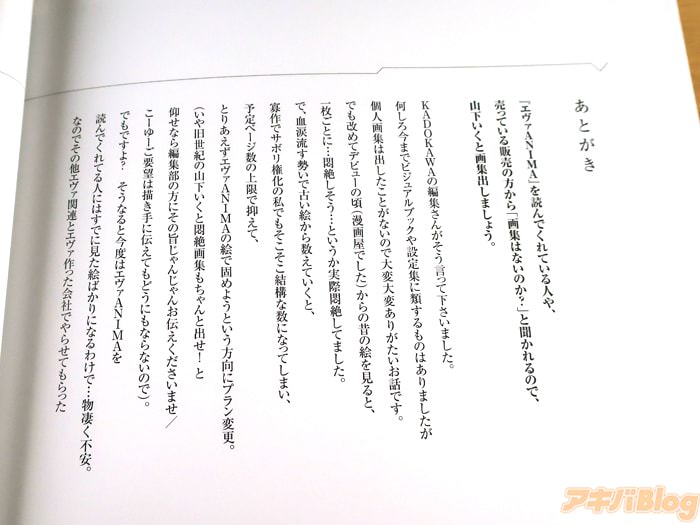 あとがき
『エヴァANIMA』を読んでくれている人や、
売っている販売の方から「画集はないのか？」と聞かれるので、
山下いくと画集出しましょう。
KADOKAWAの編集さんがそう言って下さいました。
何しろ今までビジュアルブックや設定集に類するものはありましたが
個人画集は出したことがないので大変大変ありがたいお話です。
でも改めてデビューの頃（漫画屋でした）からの昔の絵を見ると、
一枚ごとに…悶絶しそう？…というか実際悶絶してました。
で、血涙流す勢いで古い絵から数えていくと、
寡作でサボリ権化の私でもそこそこ結構な数になってしまい、
予定ページ数の上限で抑えて、
とりあえずエヴァANIMAの絵で固めようという方向にプラン変更。
（いや旧世紀の山下いくと悶絶画集もちゃんと出せ！と
仰せなら編集部の方にその旨じゃんじゃんお伝えくださいませ／
こーゆーご要望は描き手に伝えてもどうにもならないので）。
でもですよ？　そうなると今度はエヴァANIMAを
読んでくれてる人にはすでに見た絵ばかりになるわけで…物凄く不安。
なのでその他エヴァ関連とエヴァ作った会社でやらせてもらった
アキバBlog